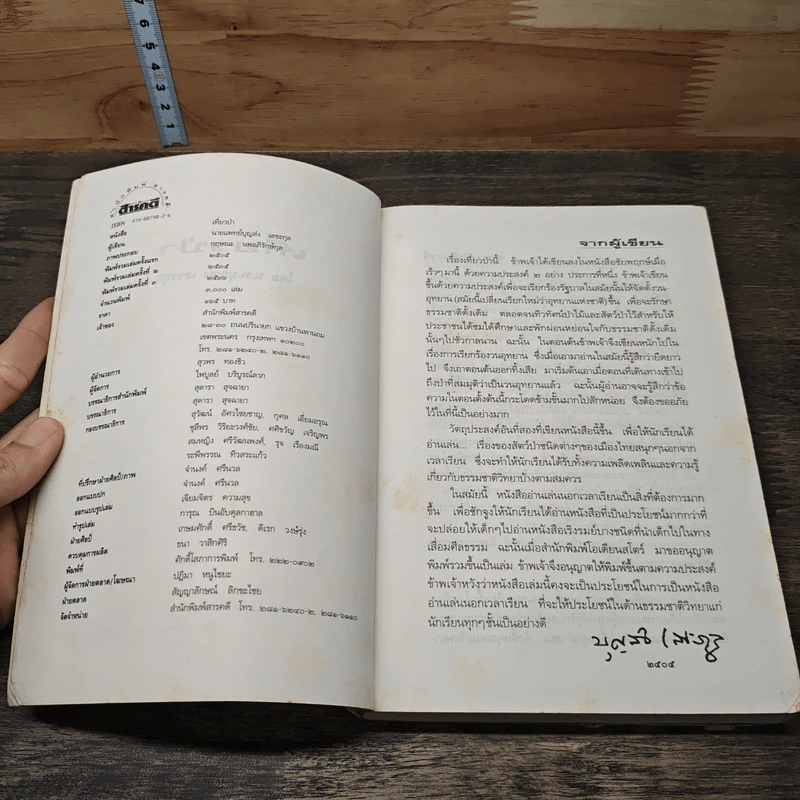 7 6 5 4 3 2 1
สำนักพิมพ์ สารคดี
สารคดี
ISBN 974-88748-2-6
หนังสือ เที่ยวป่า
ผู้เขียน นายแพทย์บุญส่ง เลขะกุล
ภาพประกอบ กฤษณะ นพอภิรักษ์กุล
พิมพ์รวมเล่มครั้งแรก ๒๕๐๕
พิมพ์รวมเล่มครั้งที่ ๒ ๒๕๓๕
พิมพ์รวมเล่มครั้งที่ ๓ ๒๕๓๖
จำนวนพิมพ์ ๓,๐๐๐ เล่ม
ราคา ๑๖๕ บาท
เจ้าของ สำนักพิมพ์สารคดี
๒๘-๓๐ ถนนปรินายก แขวงบ้านพานถม
เขตพระนคร กรุงเทพฯ ๑๐๒๐๐
โทร. ๒๘๑-๖๒๔๐-๒, ๒๘๑-๖๑๑๐
ผู้อำนวยการ สุวพร ทองธิว
ผู้จัดการ ไพบูลย์ บริบูรณ์ลาภ
บรรณาธิการสำนักพิมพ์ สุดารา สุจฉายา
บรรณาธิการ สุดารา สุจฉายา
กองบรรณาธิการ สุวัฒน์ อัศวไชยชาญ, กุศล เอี่ยมอรุณ
ชุลีพร วิรัยะวงค์ชัย, คติขวัญ เจริญพร
สมหญิง ศรีวัฒนพงศ์, รุจ เรืองมณี
ระพีพรรณ ทิวสระแก้ว
ที่ปรึกษาฝ่ายศิลป์/ภาพ จำนงค์ ศรีนวล
ออกแบบปก จำนงค์ ศรีนวล
ออกแบบรูปเล่ม เจียมจิตร ความสุข
ทำรูปเล่ม การุณ บินอับดุลกาฮาล
ฝ่ายศิลป์ เกษมศักดิ์ ศรีธวัช, ดิเรก วงษ์รุ่ง
ควบคุมการผลิต ธนา วาสิกศิริ
พิมพ์ที่ ศักดิ์โสภาการพิมพ์ โทร. ๒๒๒-๐๙๐๒
ผู้จัดการฝ่ายตลาด/โฆษณา ปฎิมา หนูไชยะ
ฝ่ายตลาด สัญญาลักษณ์ ลิกขะไชย
จัดจำหน่าย สำนักพิมพ์สารคดี โทร. ๒๘๑-๖๒๔๐-๒, ๒๘๑-๖๑๑๐
จากผู้เขียน
เรื่องเที่ยวป่านี้ ข้าพเจ้าได้เขียนลงในหนังสือชัยพฤกษ์เมื่อ
เร็วๆ มานี้ ด้วยความประสงค์ ๒ อย่าง ประการที่หนึ่ง ข้าพเจ้าเขียน
ขึ้นด้วยความประสงค์เพื่อจะเรียกร้องรัฐบาลในสมัยนั้นให้จัดตั้งวน-
อุทยาน (สมัยนี้เปลี่ยนเรียกใหม่ว่าอุทยานแห่งชาติ) ขึ้น เพื่อจะรักษา
ธรรมชาติดั้งเดิม ตลอดจนทิวทัศน์ป่าไม้และสัตว์ป่าไว้สำหรับให้
ประชาชนได้ชมได้ศึกษาและพักผ่อนหย่อนใจกับธรรมชาติดั้งเดิม
นั้นๆ ไปชั่วกาลนาน ฉะนั้น ในตอนต้นข้าพเจ้าจึงเขียนหนักไปใน
เรื่องการเรียกร้องวนอุทยาน ซึ่งเมื่อเอามาอ่านในสมัยนี้รู้สึกว่ายืดยาว
ไป จึงเอาตอนต้นออกทิ้งเสีย มาเริ่มต้นเอาเมื่อตอนที่เดินทางเข้าไป
ถึงป่าที่สมมุติว่าเป็นวนอุทยานแล้ว ฉะนั้นผู้อ่านอาจจะรู้สึกว่าข้อ
ความในตอนตั้งต้นนี้กระโดดข้ามขั้นมากไปสักหน่อย จึงต้องขออภัย
ไว้ในที่นี้เป็นอย่างมาก
วัตถุประสงค์อันที่สองที่เขียนหนังสือนี้ขึ้น เพื่อให้นักเรียนได้
อ่านเล่น... เรื่องของสัตว์ป่าชนิดต่างๆ ของเมืองไทยสนุกๆ นอกจาก
เวลาเรียน ซึ่งจะทำให้นักเรียนได้รับทั้งความเพลิดเพลินและความรู้
เกี่ยวกับธรรมชาติวิทยาบ้างตามสมควร
ในสมัยนี้ หนังสืออ่านเล่นนอกเวลาเรียนเป็นสิ่งที่ต้องการมาก
ขึ้น เพื่อชักจูงให้นักเรียนได้อ่านหนังสือที่เป็นประโยชน์มากกว่าที่
จะปล่อยให้เด็กๆ ไปอ่านหนังสือเริงรมย์บางชนิดที่นำเด็กไปในทาง
เสื่อมศีลธรรม ฉะนั้นเมื่อสำนักพิมพ์โอเดียนสโตร์ มาขออนุญาต
พิมพ์รวมขึ้นเป็นเล่ม ข้าพเจ้าจึงอนุญาตให้พิมพ์ขึ้นตามความประสงค์
ข้าพเจ้าหวังว่าหนังสือเล่มนี้คงจะเป็นประโยชน์ในการเป็นหนังสือ
อ่านเล่นนอกเวลาเรียน ที่จะให้ประโยชน์ในด้านธรรมชาติวิทยาแก่
นักเรียนทุกๆ ชั้นเป็นอย่างดี
๒๕๐๕